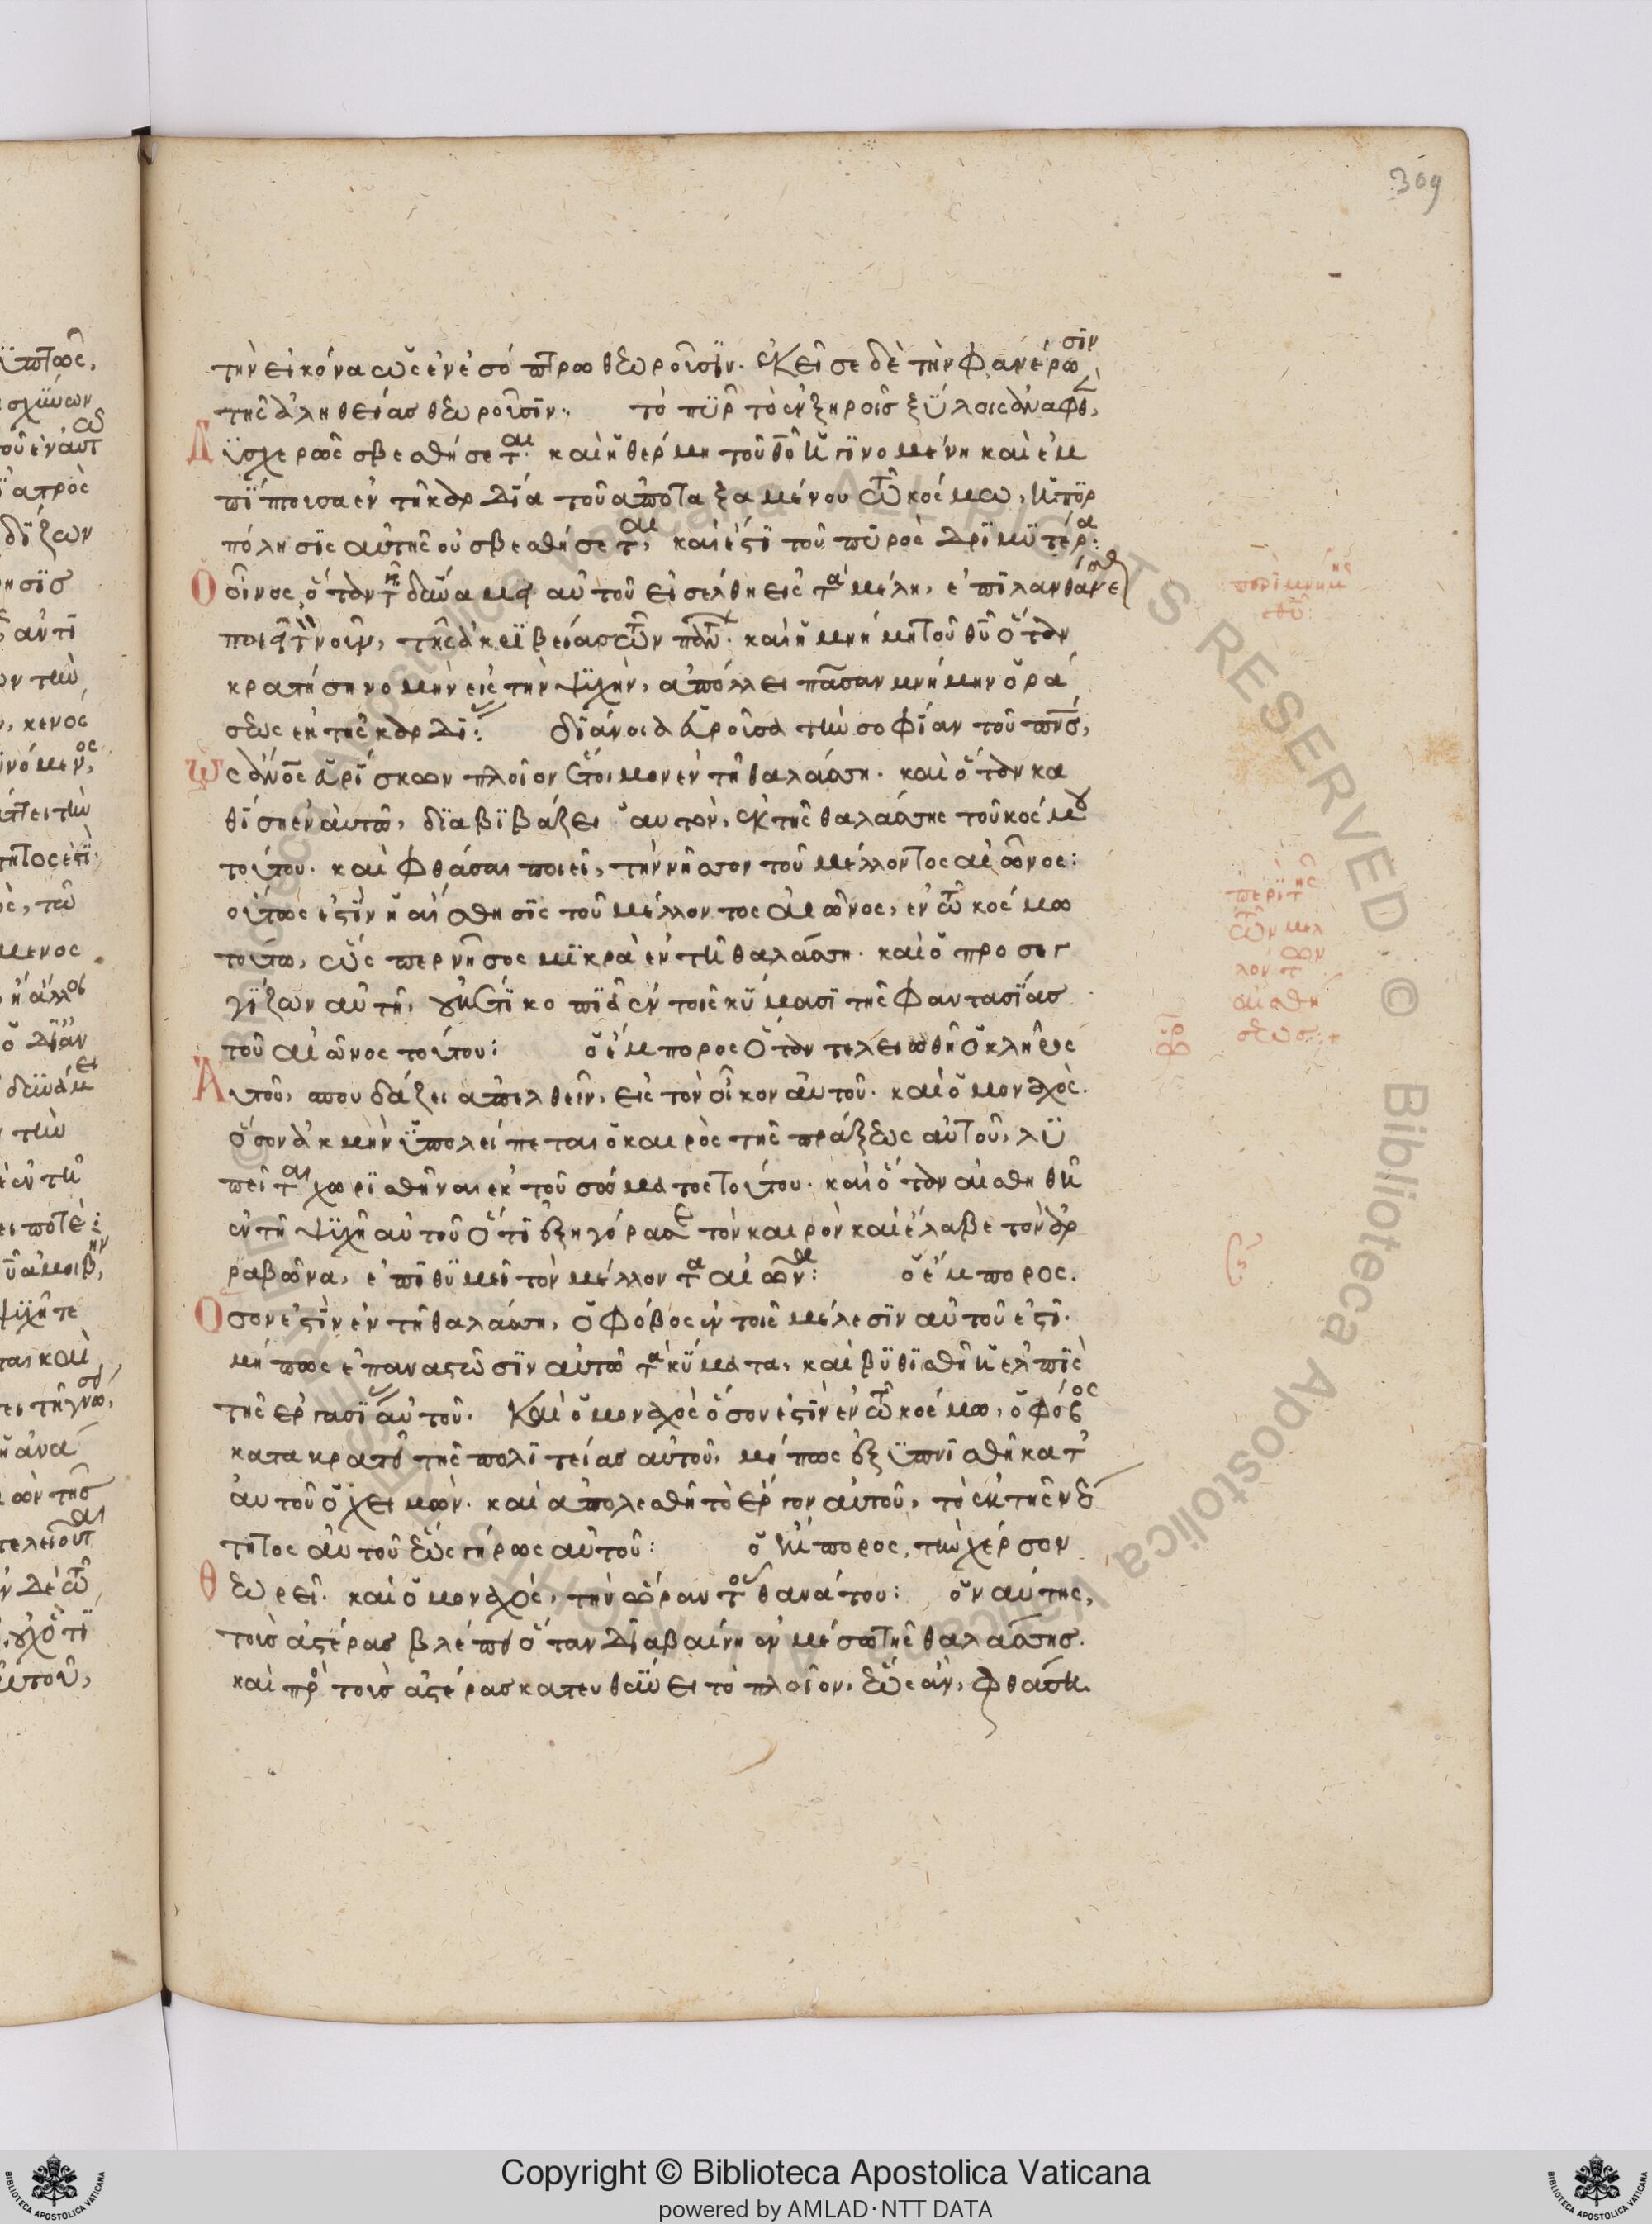 309
τὴν εἰκόνα ὡς ἐν ἐσόπτρω θεωροῦσϊν. ἐκεῖσε δὲ τὴν φανέρωσϊν
τῆς ἀληθείας θεωροῦσϊν· τὸ πῦρ τὸ ἐν ξηροῖς ξύλοις ἀναφθὲν,
Δυσχερῶς σβεσθήσεται· καὶ ἡ θέρμη τοῦ θυ ἡ γινομένη καὶ ἐμ
πίπτουσα ἐν τῆ καρδία τοῦ ἀποταξαμένου τῶ κόσμω, ἡ πυρ
πόλησις αὐτῆς οὐ σβεσθήσεται, καὶ ἔστι τοῦ πυρὸς δριμυτέρα:
Ὁ οἶνος ὅταν τῆ δυνάμει αὐτοῦ εἰσέλθη εἰς τὰ μέλη, ἐπιλανθάνεσθαι
ποιεῖ τὸν νοῦν, τῆς ἀκριβείας τῶν πάντων. καὶ ἡ μνήμη τοῦ θυ ὅταν
κρατήση νομὴν εἰς τὴν ψυχὴν, ἀπόλλει πᾶσαν μνήμην ὁρά
σεως ἐκ τῆς καρδίας: διάνοια εὑροῦσα τὴν σοφίαν τοῦ πνς,
Ὡς ἀνος εὑρίσκων πλοῖον ἕτοιμον ἐν τῆ θαλάσση. καὶ ὅταν κα
θίση ἐν αὐτῶ, διαβιβάζει αὐτὸν, ἐκ τῆς θαλάσσης τοῦ κόσμου
τούτου. καὶ φθάσαι ποιεῖ, τὴν νῆσον τοῦ μέλλοντος αἰῶνος:
οὕτως ἐστὶν ἡ αἴσθησις τοῦ μέλλοντος αἰῶνος, ἐν τῶ κόσμω
τούτω, ὥσπερ νῆσος μικρὰ ἐν τῆ θαλάσση. καὶ ὁ προσεγ
γίζων αὐτῆ, οὐκέτι κοπιᾶ ἐν τοῖς κύμασι τῆς φαντασίας
τοῦ αἰῶνος τούτου: ὁ ἔμπορος ὅταν τελειωθῆ ὁ κλῆρος
Αὐτοῦ, σπουδάζει ἀπελθεῖν, εἰς τὸν οἶκον αὐτοῦ. καὶ ὁ μοναχὸς.
ὅσον ἀκμὴν ὑπολείπεται ὁ καιρὸς τῆς πράξεως αὐτοῦ, λυ
πεῖται χωρισθῆναι ἐκ τοῦ σώματος τούτου. καὶ ὅταν αἰσθηθῆ
ἐν τῆ ψυχῆ αὐτοῦ ὅτι ἐξηγόρασε τὸν καιρὸν καὶ ἔλαβε τὸν ἀρ
ραβῶνα, ἐπιθυμεῖ τὸν μέλλοντα αἰῶνα: ὁ ἔμπορος.
Ὅσον ἐστὶν ἐν τῆ θαλάσση, ὁ φόβος ἐν τοῖς μέλεσϊν αὐτοῦ ἐστὶ.
μήπως ἐπαναστῶσϊν αὐτῶ τὰ κύματα, καὶ βυθισθῆ ἡ ἐλπὶς
τῆς ἐργασίας αὐτοῦ. Καὶ ὁ μοναχὸς ὅσον ἐστὶν ἐν τῶ κόσμω, ὁ φόβος
κατακρατεῖ τῆς πολιτείας αὐτοῦ, μήπως ἐξυπνισθῆ κατ
αὐτοῦ ὁ χειμών. καὶ ἀπολεσθῆ τὸ ἔργον αὐτοῦ, τὸ ἐκ τῆς νεό
τητος αὐτοῦ ἕως γήρως αὐτοῦ: ὁ ἔμπορος, τὴν χέρσον
Θεωρεῖ. καὶ ὁ μοναχὸς, τὴν ὥραν τοῦ θανάτου: ὁ ναύτης,
τοὺς ἀστέρας βλέπει ὅταν διαβαίνη ἐν μέσω τῆς θαλάσσης.
καὶ πρὸς τοὺς ἀστέρας κατευθύνει τὸ πλοῖον, ἕως ἂν, φθάση
περὶ μνήμης
θυ
περὶ τῆς
τῶν μελ
λόντων
αἰσθή
σεως:+
Copyright © Biblioteca Apostolica Vaticana
powered by AMLAD·NTT DATA